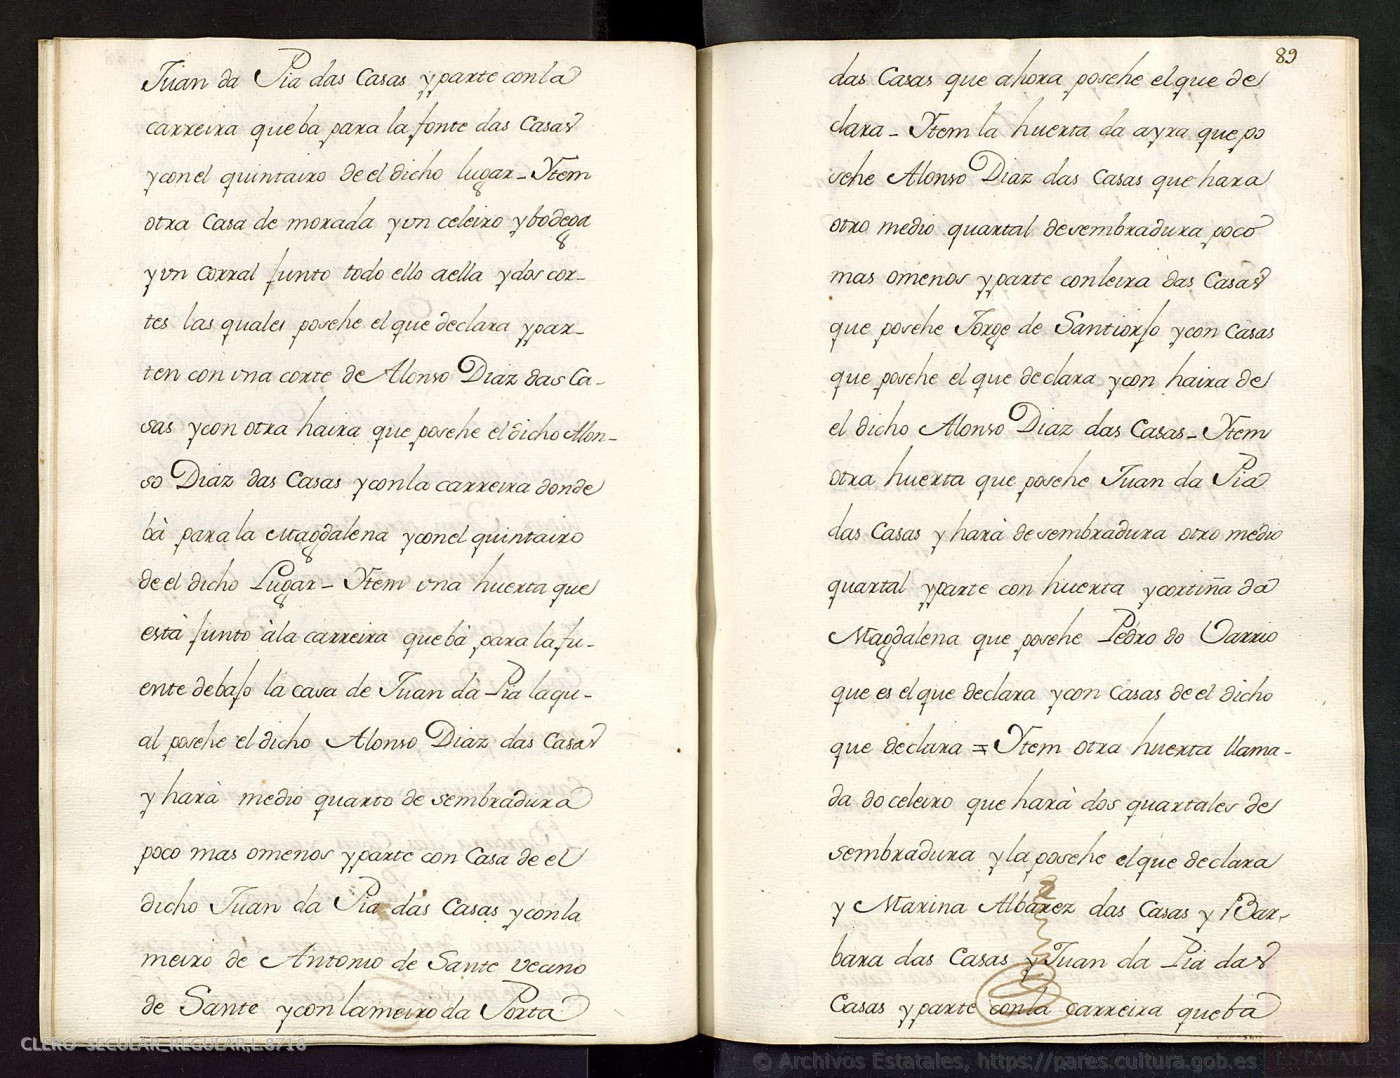 Juan da Pia das Casas y parte conla
carreira que ba para la fonte das Casas
y conel quintairo de el dicho lugar - Ytem
otra Casa de morada y vn celeiro y bodega
y vn corral junto todo ello aella y dos cor-
tes las quales posehe el que declara y par-
ten con vna corte de Alonso Diaz das Ca-
sas y con otra haira que posehe el dicho Alon-
so Diaz das Casas y conla carreira donde
bà para la Magdalena y conel quintairo
de el dicho Lugar - Ytem vna huerta que
està junto àla carreira que bà para la fu-
ente debajo la casa de Juan da Pia laqu-
al posehe el dicho Alonso Diaz das Casas
y harà medio quarto de sembradura
poco mas omenos y parte con Casa de el
dicho Juan da Pia das Casas y conla
meiro de Antonio de Sante vecino
de Sante y con lameiro da Porta
89
das Casas que ahora posehe el que de
clara - Ytem la huerta da ayra que po
sehe Alonso Diaz das Casas que hara
otro medio quartal de sembradura poco
mas omenos y parte con leira das Casas
que posehe Jorge de Santiorjo y con Casas
que posehe el que declara y con haira de
el dicho Alonso Diaz das Casas - Ytem
otra huerta que posehe Juan da Pia
das Casas y harà de sembradura otro medio
quartal y parte con huerta y cortiña da
Magdalena que posehe Pedro do Varrio
que es el que declara y con Casas de el dicho
que declara = Ytem otra huerta llama-
da do celeiro que harà dos quartales de
sembradura y la posehe el que declara
y Marina Albarez das Casas y Bar-
bara das Casas y Juan da Pia das
Casas y parte conla carreira que ba
CLERO-SECULAR_REGULAR,L.8718
© Archivos Estatales, https://pares.cultura.gob.es
ARCHIVOS
ESTATALES